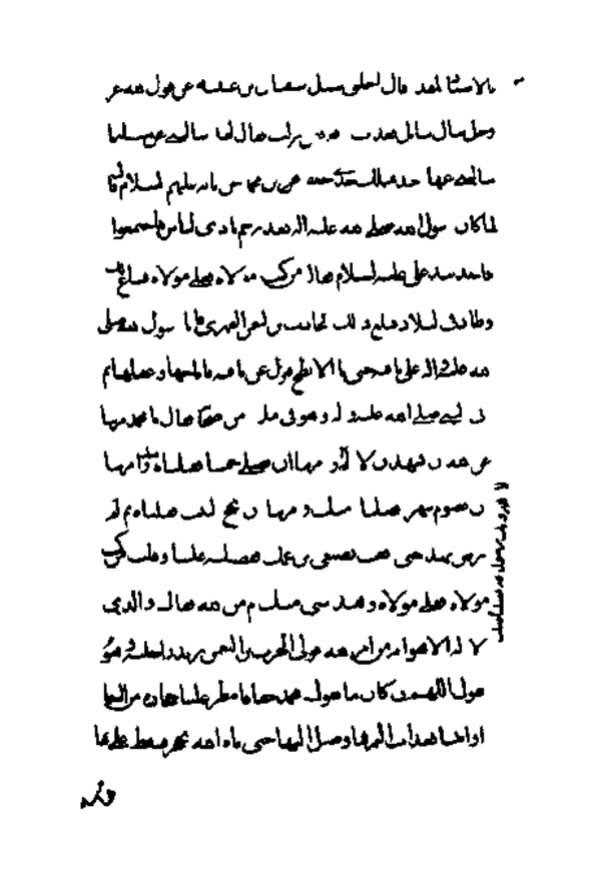 قال الثعلبي سئل سفيان بن عيينه عن قول الله عز
وجل سال سائل بعذاب نزلت فقال لقد سالتني عن مسئلة
سالني عنها احد قبلك حدثني جعفر بن محمد عن ابائه عليهم السلام قال
لما كان رسول الله صلى الله عليه واله بغدير خم نادى الناس فاجتمعوا
فاخذ بيد علي عليه السلام فقال من كنت مولاه فعلي مولاه فشاع ذلك
وطار في البلاد فبلغ ذلك الحارث بن النعمن الفهري فاتى رسول الله صلى
الله عليه واله على ناقته حتى اتى الابطح فنزل عن ناقته فاناخها وعقلها ثم
اتى النبي صلى الله عليه واله وهو في ملا من فقال يا محمد امرتنا
عن الله ان نشهد ان لا اله وامرتنا ان نصلي خمسا فقبلناه وامرتنا
ان نصوم شهرا فقبلنا منك وامرتنا ان نحج البيت فقبلناه ثم لم
ترض بهذا حتى رفعت بضبعي بن عمك ففضلته علينا وقلت من كنت
مولاه فعلي مولاه وهذا شي منك ام من الله فقال والذي
لا اله الا هو انه من امر الله فولى الحرث بن النعمن يريد راحلته وهو
يقول اللهم ان كان ما يقوله محمد حقا فامطر علينا حجارة من السما
او ائتنا بعذاب اليم فما وصل اليها حتى رماه الله بحجر فسقط على